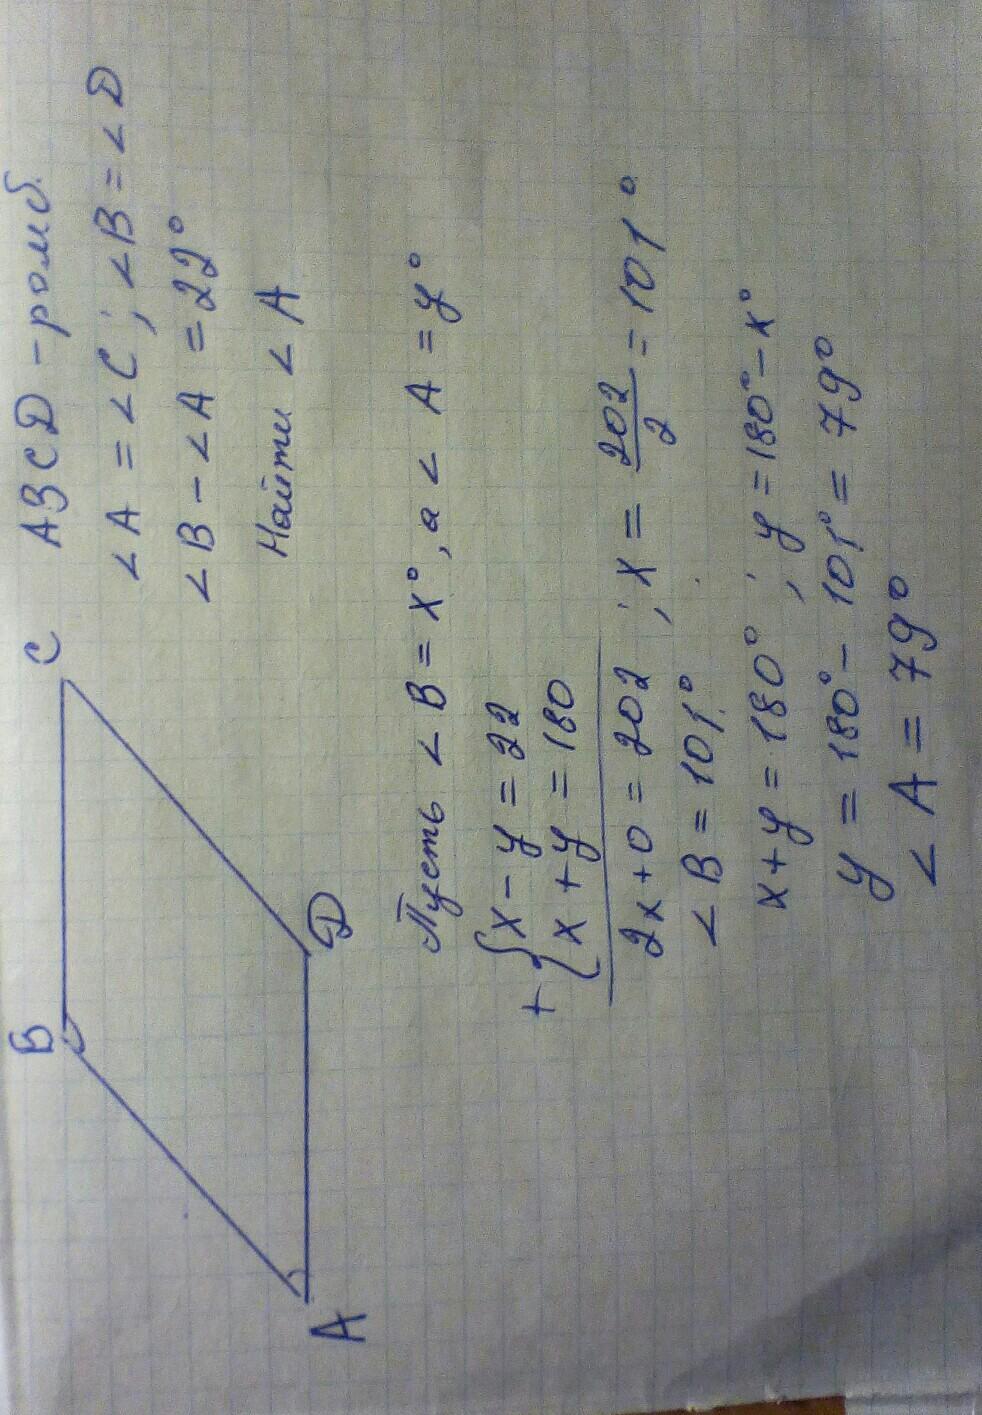 ABCD - ромб.
∠A = ∠C ; ∠B = ∠D
∠B - ∠A = 22°
Найти ∠A
B
C
A
D
Пусть ∠B = x°, а ∠A = y°
+ { x - y = 22
x + y = 180
2x + 0 = 202 ; x = 202/2 = 101°
∠B = 101°
x + y = 180° ; y = 180° - x°
y = 180° - 101° = 79°
∠A = 79°